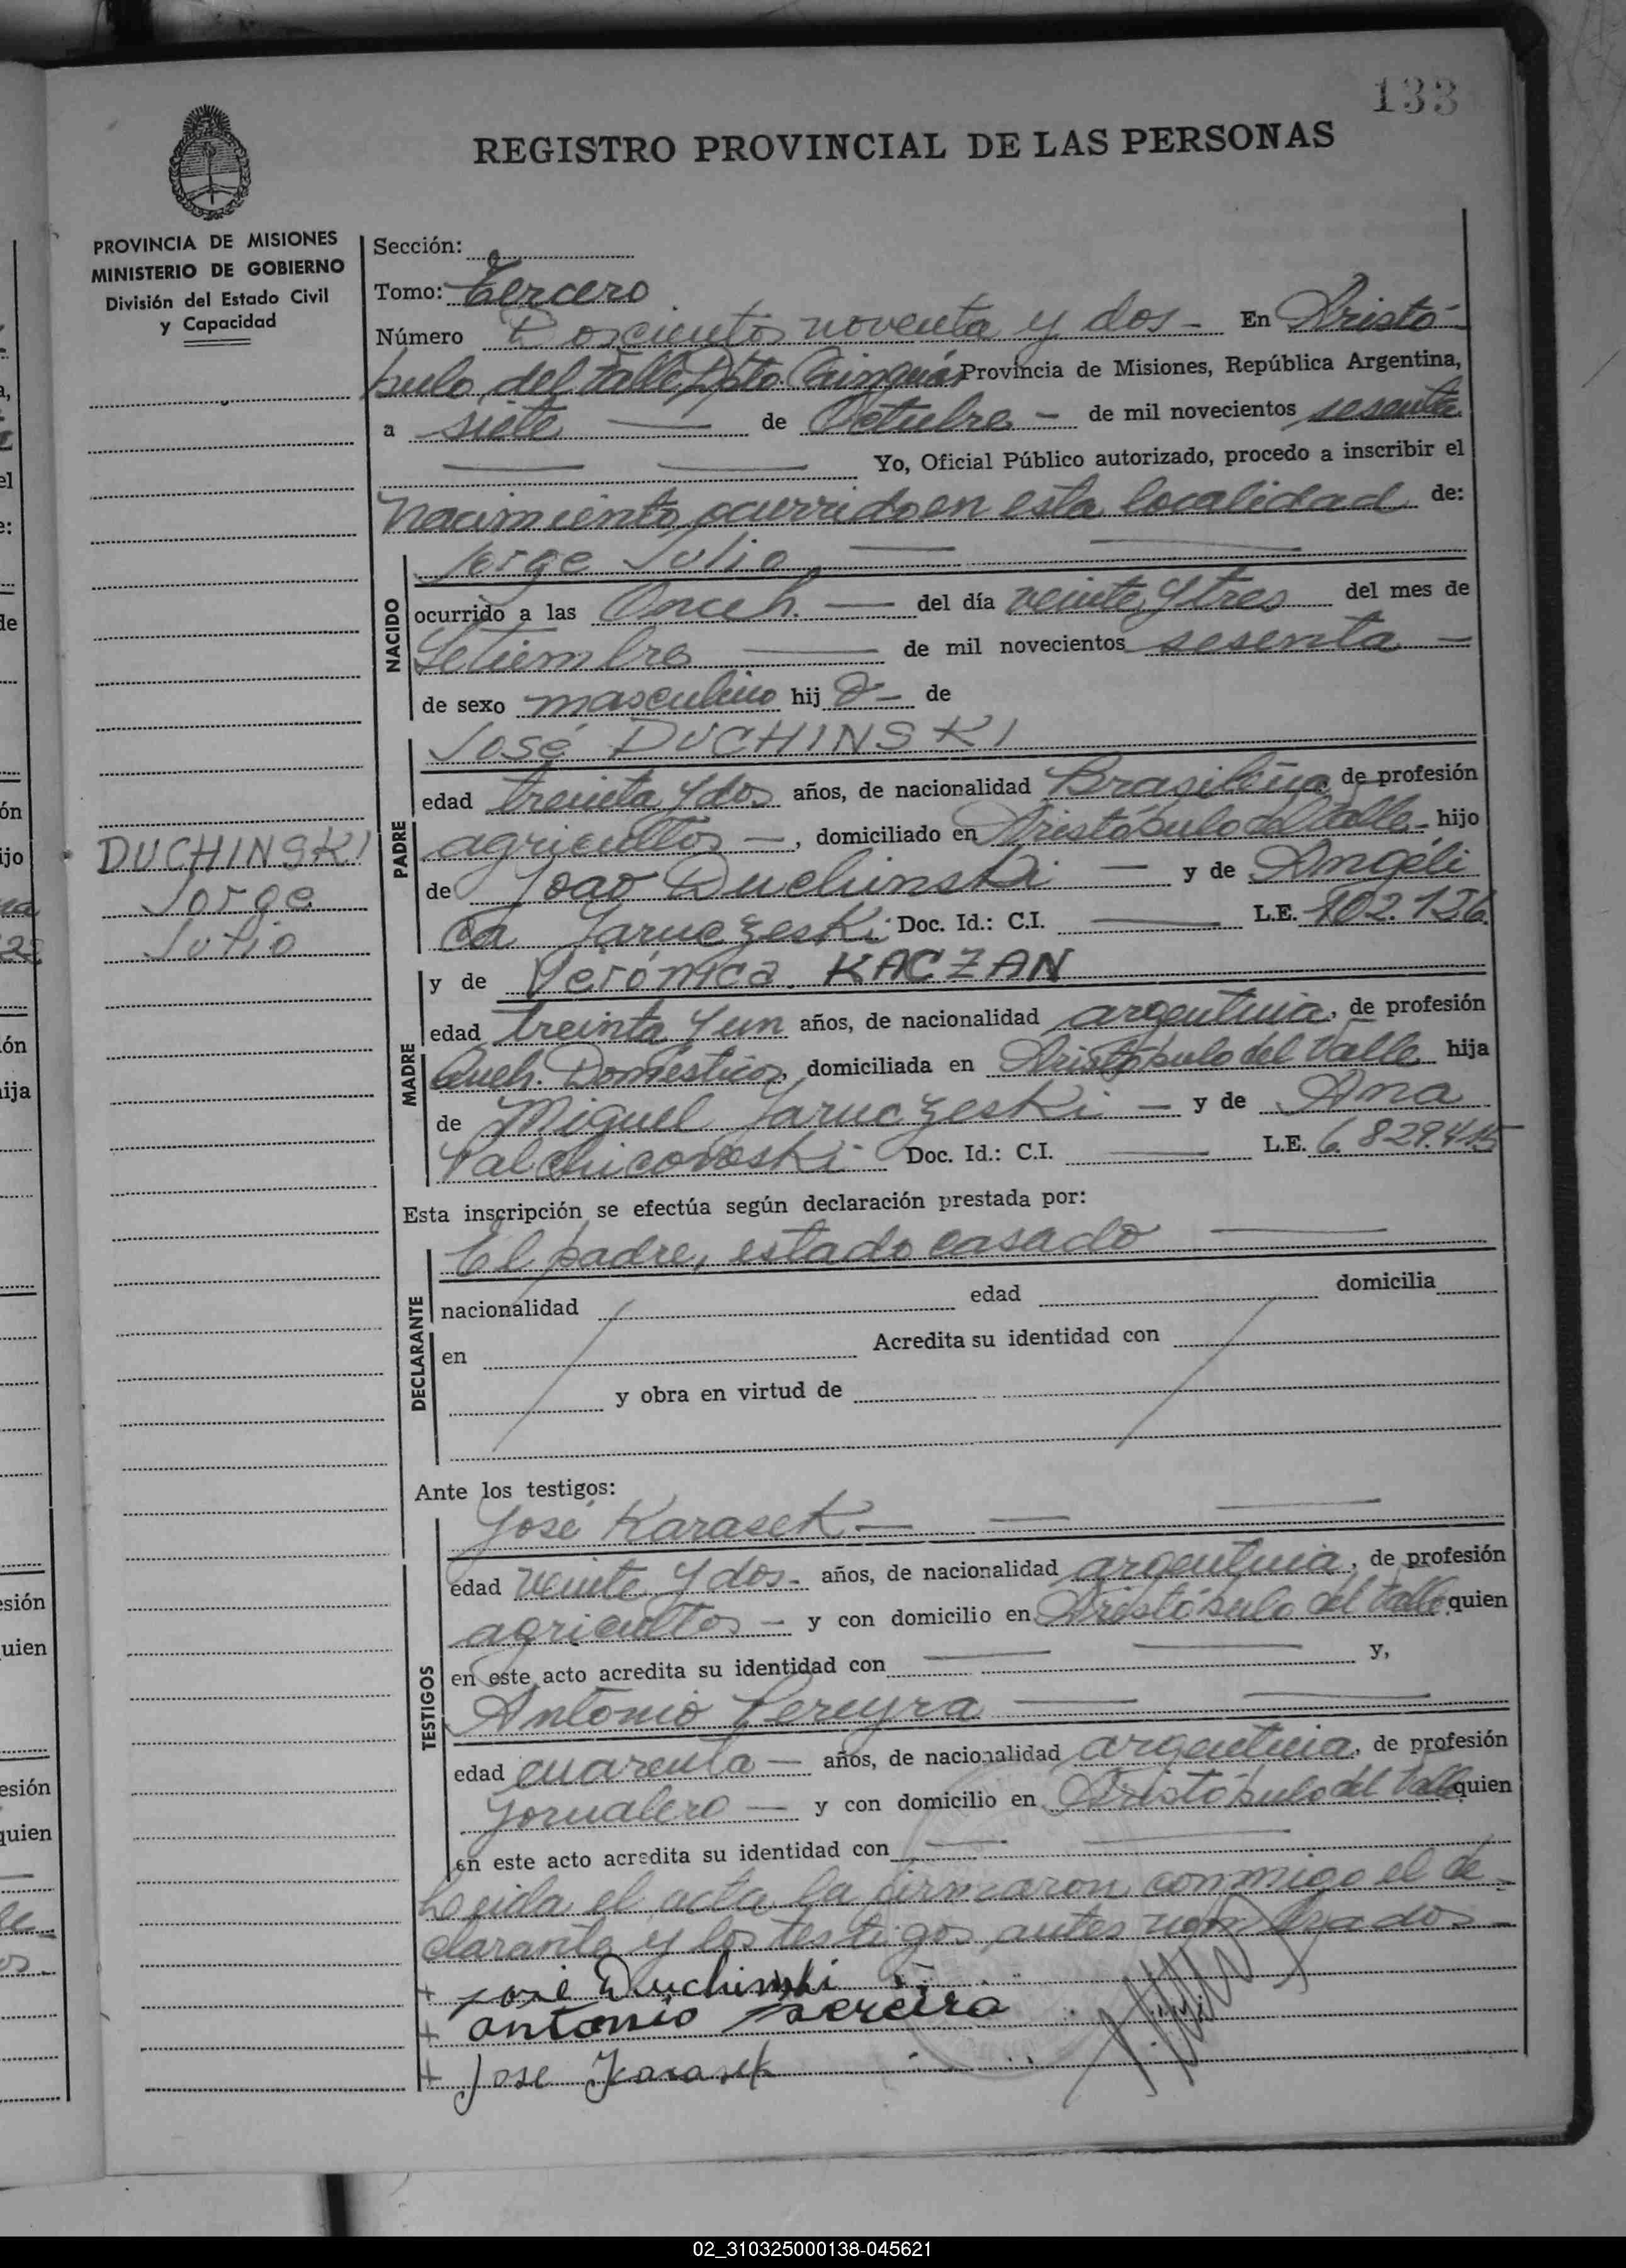 133
REGISTRO PROVINCIAL DE LAS PERSONAS
PROVINCIA DE MISIONES
MINISTERIO DE GOBIERNO
División del Estado Civil
y Capacidad
Sección:
Tomo: Tercero
Número Doscientos noventa y dos - En Aristó-
bulo del Valle Dpto. Cainguás Provincia de Misiones, República Argentina,
a siete de Octubre - de mil novecientos sesenta
Yo, Oficial Público autorizado, procedo a inscribir el
Nacimiento ocurrido en esta localidad de:
NACIDO
Jorge Julio
ocurrido a las Once h. del día veinte y tres del mes de
Setiembre de mil novecientos sesenta
de sexo masculino hij o - de
PADRE
José DUCHINSKI
edad treinta y dos años, de nacionalidad Brasileña de profesión
agricultor -, domiciliado en Aristóbulo del Valle - hijo
DUCHINSKI
Jorge
Julio
de Joao Duchinski y de Angéli
ca Jaruczeski Doc. Id.: C.I. L.E. 102.136
MADRE
y de Verónica KACZAN
edad treinta y un años, de nacionalidad argentina, de profesión
Queh. Domésticos, domiciliada en Aristóbulo del Valle hija
de Miguel Jaruczeski - y de Ana
Doc. Id.: C.I. L.E. 6.829.415
Esta inscripción se efectúa según declaración prestada por:
DECLARANTE
El padre, estado casado
nacionalidad edad domicilia
en Acredita su identidad con
y obra en virtud de
Ante los testigos:
TESTIGOS
José Karasek -
edad veinte y dos - años, de nacionalidad argentina, de profesión
agricultor - y con domicilio en Aristóbulo del Valle quien
en este acto acredita su identidad con y,
Antonio Pereyra
edad cuarenta - años, de nacionalidad argentina, de profesión
Jornalero - y con domicilio en Aristóbulo del Valle quien
en este acto acredita su identidad con
Leida el acta la firmaron conmigo el de-
clarante y los testigos antes nombrados -
+ José Duchinski
+ antonio pereira
+ Jose Karasek
02_310325000138-045621